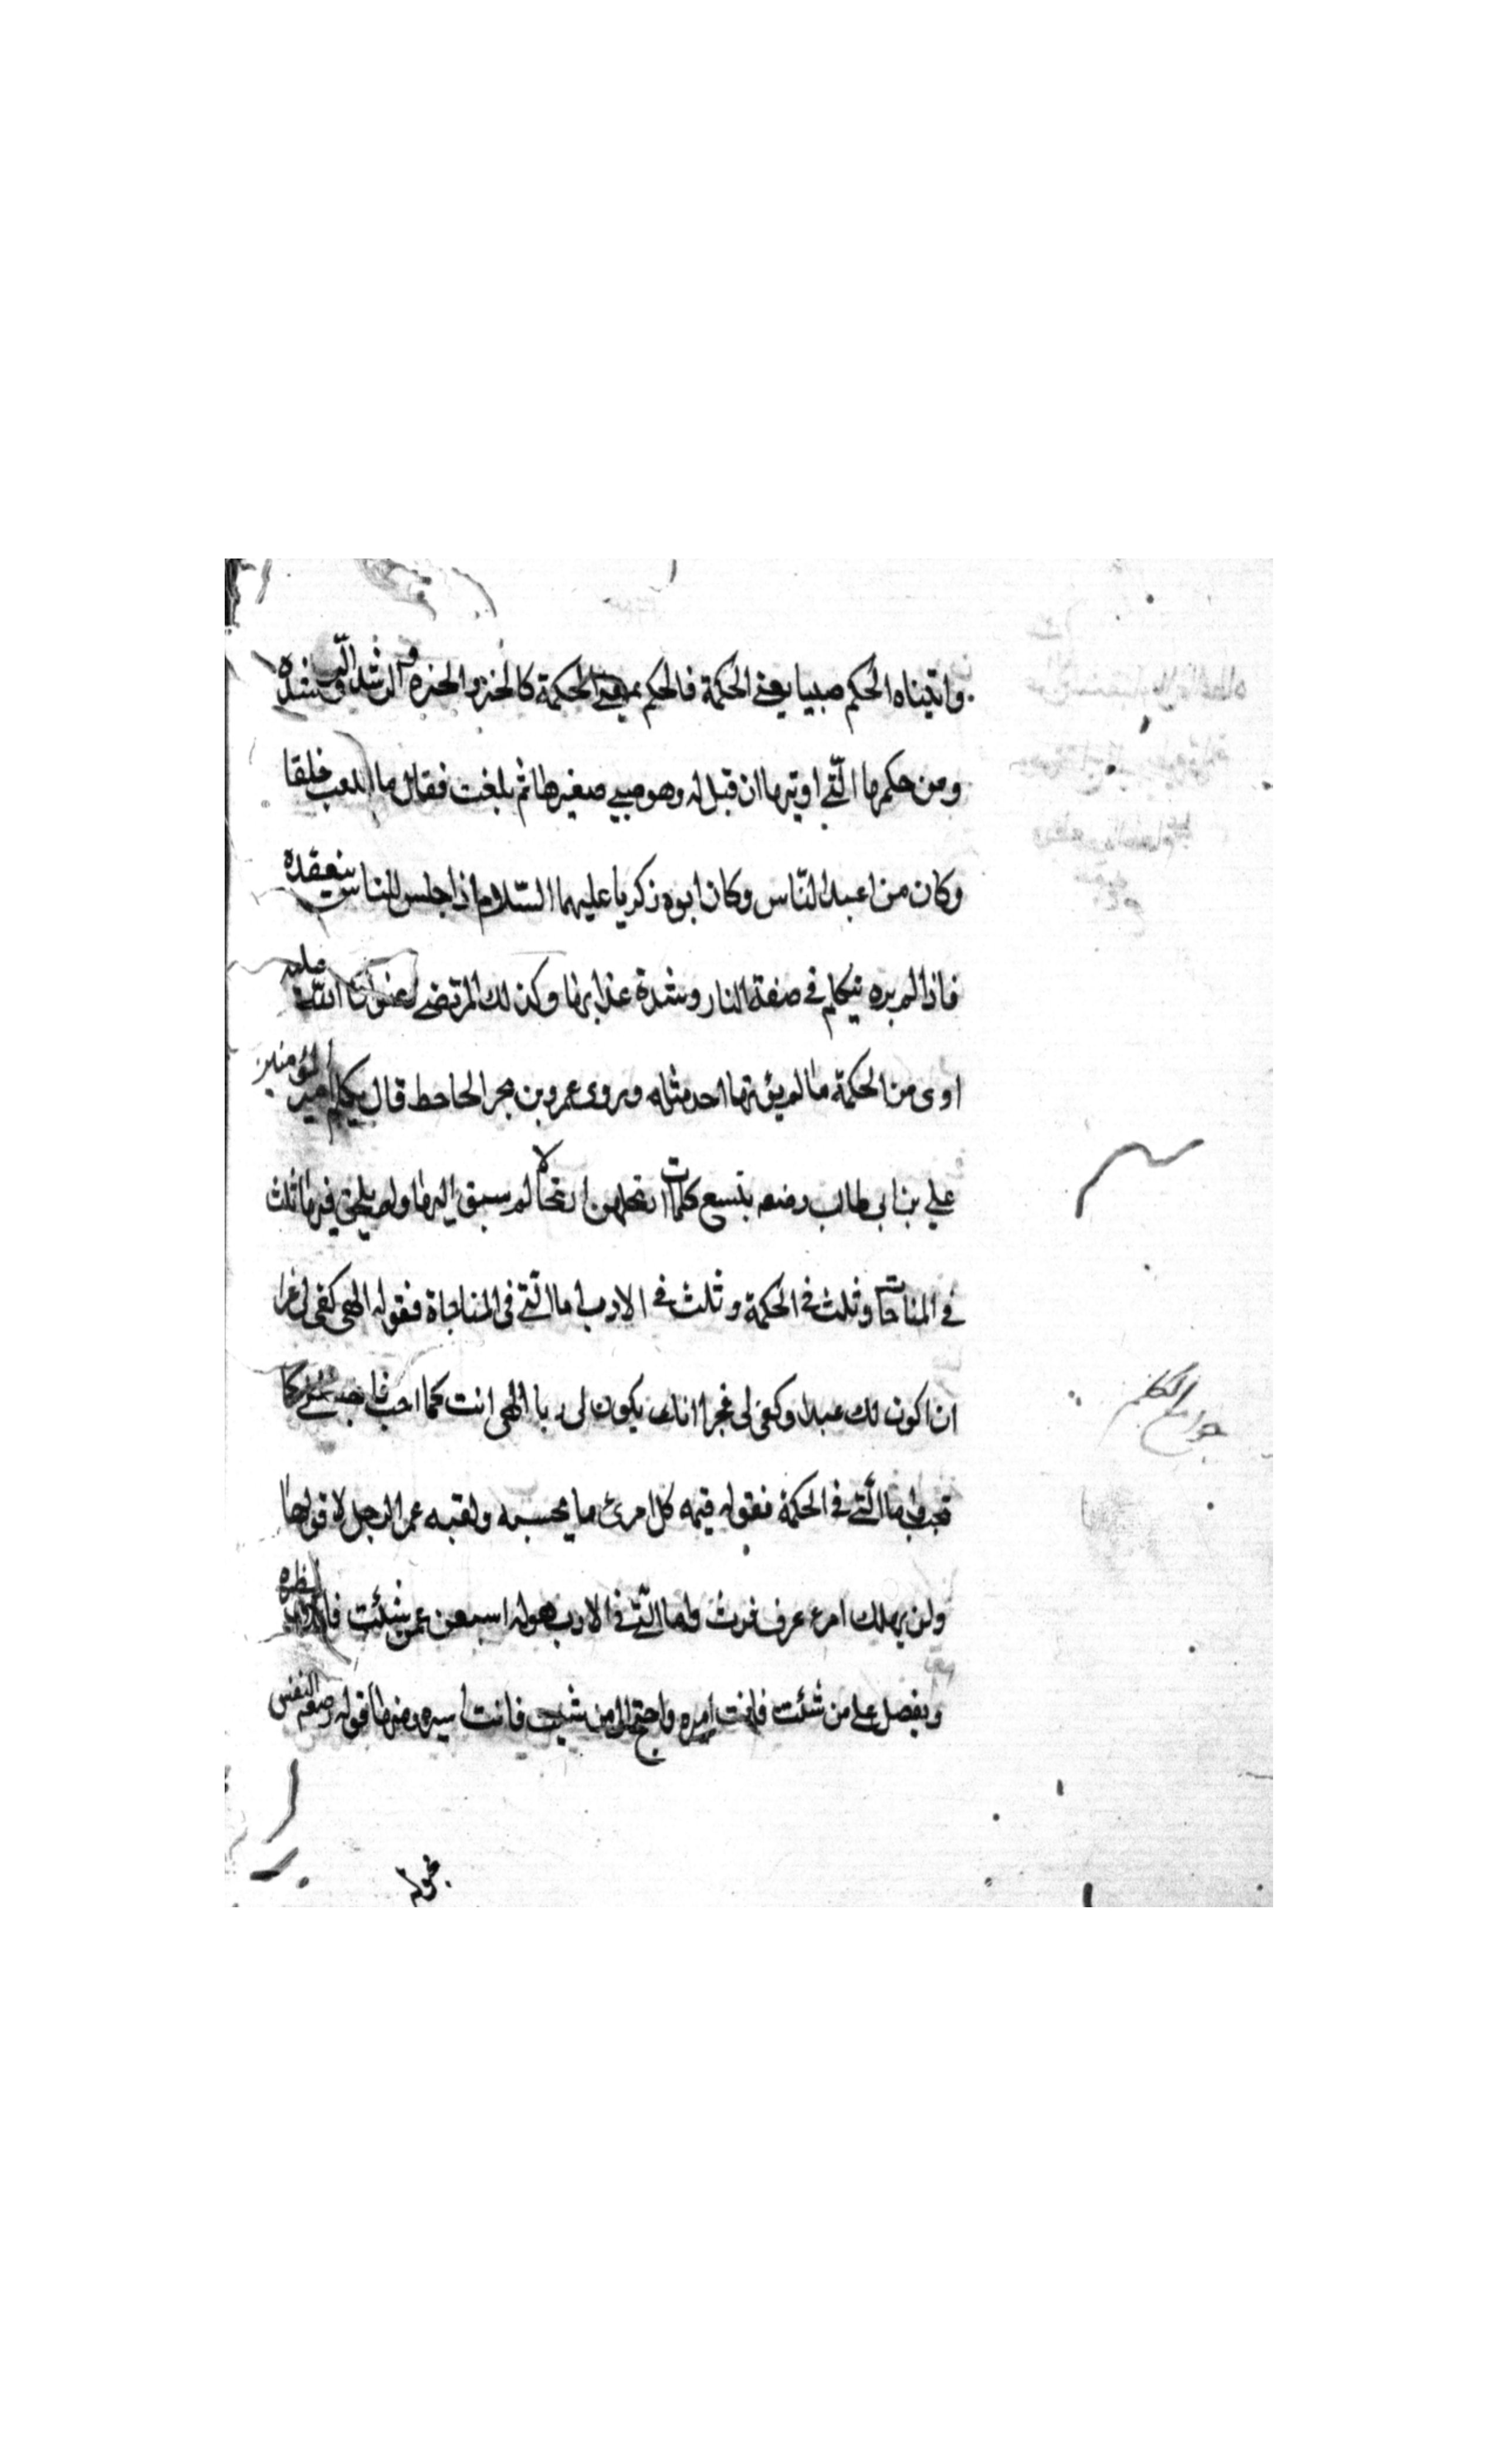 واتيناه الحكم صبيا يعنى الحكمة فالحكم بمعنى الحكمة كالخبر والخبره و الرشد
ومن حكمها الّتى اوتيها ان قيل له وهو صبى صغير ثم بلغت فقال ما اللعب خلقا
وكان من اعبد النّاس وكان ابوه زكريا عليهما السّلام اذا جلس للناس ينعقده
فاذا لم يره يتكلم فى صفة النار وشدة عذابها وكذلك المرتضى رضوان الله عليه
اوتى من الحكمة ما لم يؤتها احد مثله ويروى عمرو بن بحر الجاحظ قال تكلم امير المؤمنين
على بن ابى طالب رضه بتسع كلمات ارتجلهن ارتجالا لم يسبق اليها ولم يلحق فيها ثلث
فى المناجات وثلث فى الحكمة وثلث فى الادب اما الّتى فى المناجاة فقوله الهى كفى لى عزا
ان اكون لك عبدا وكفى لى فخرا انك يكون لى ربا الهى انت كما احب فاجعلنى كما
تحب اما الّتى فى الحكمة فقوله قيمه كل امرئ ما يحسنه وقوله
ولن يهلك امرء عرف قدره واما الّتى فى الادب قوله استغن عمن شئت فانت نظيره
وتفضل على من شئت فانت اميره واحتج الى من شئت فانت اسيره ومنها قوله رضه النفس
جوامع الكلم